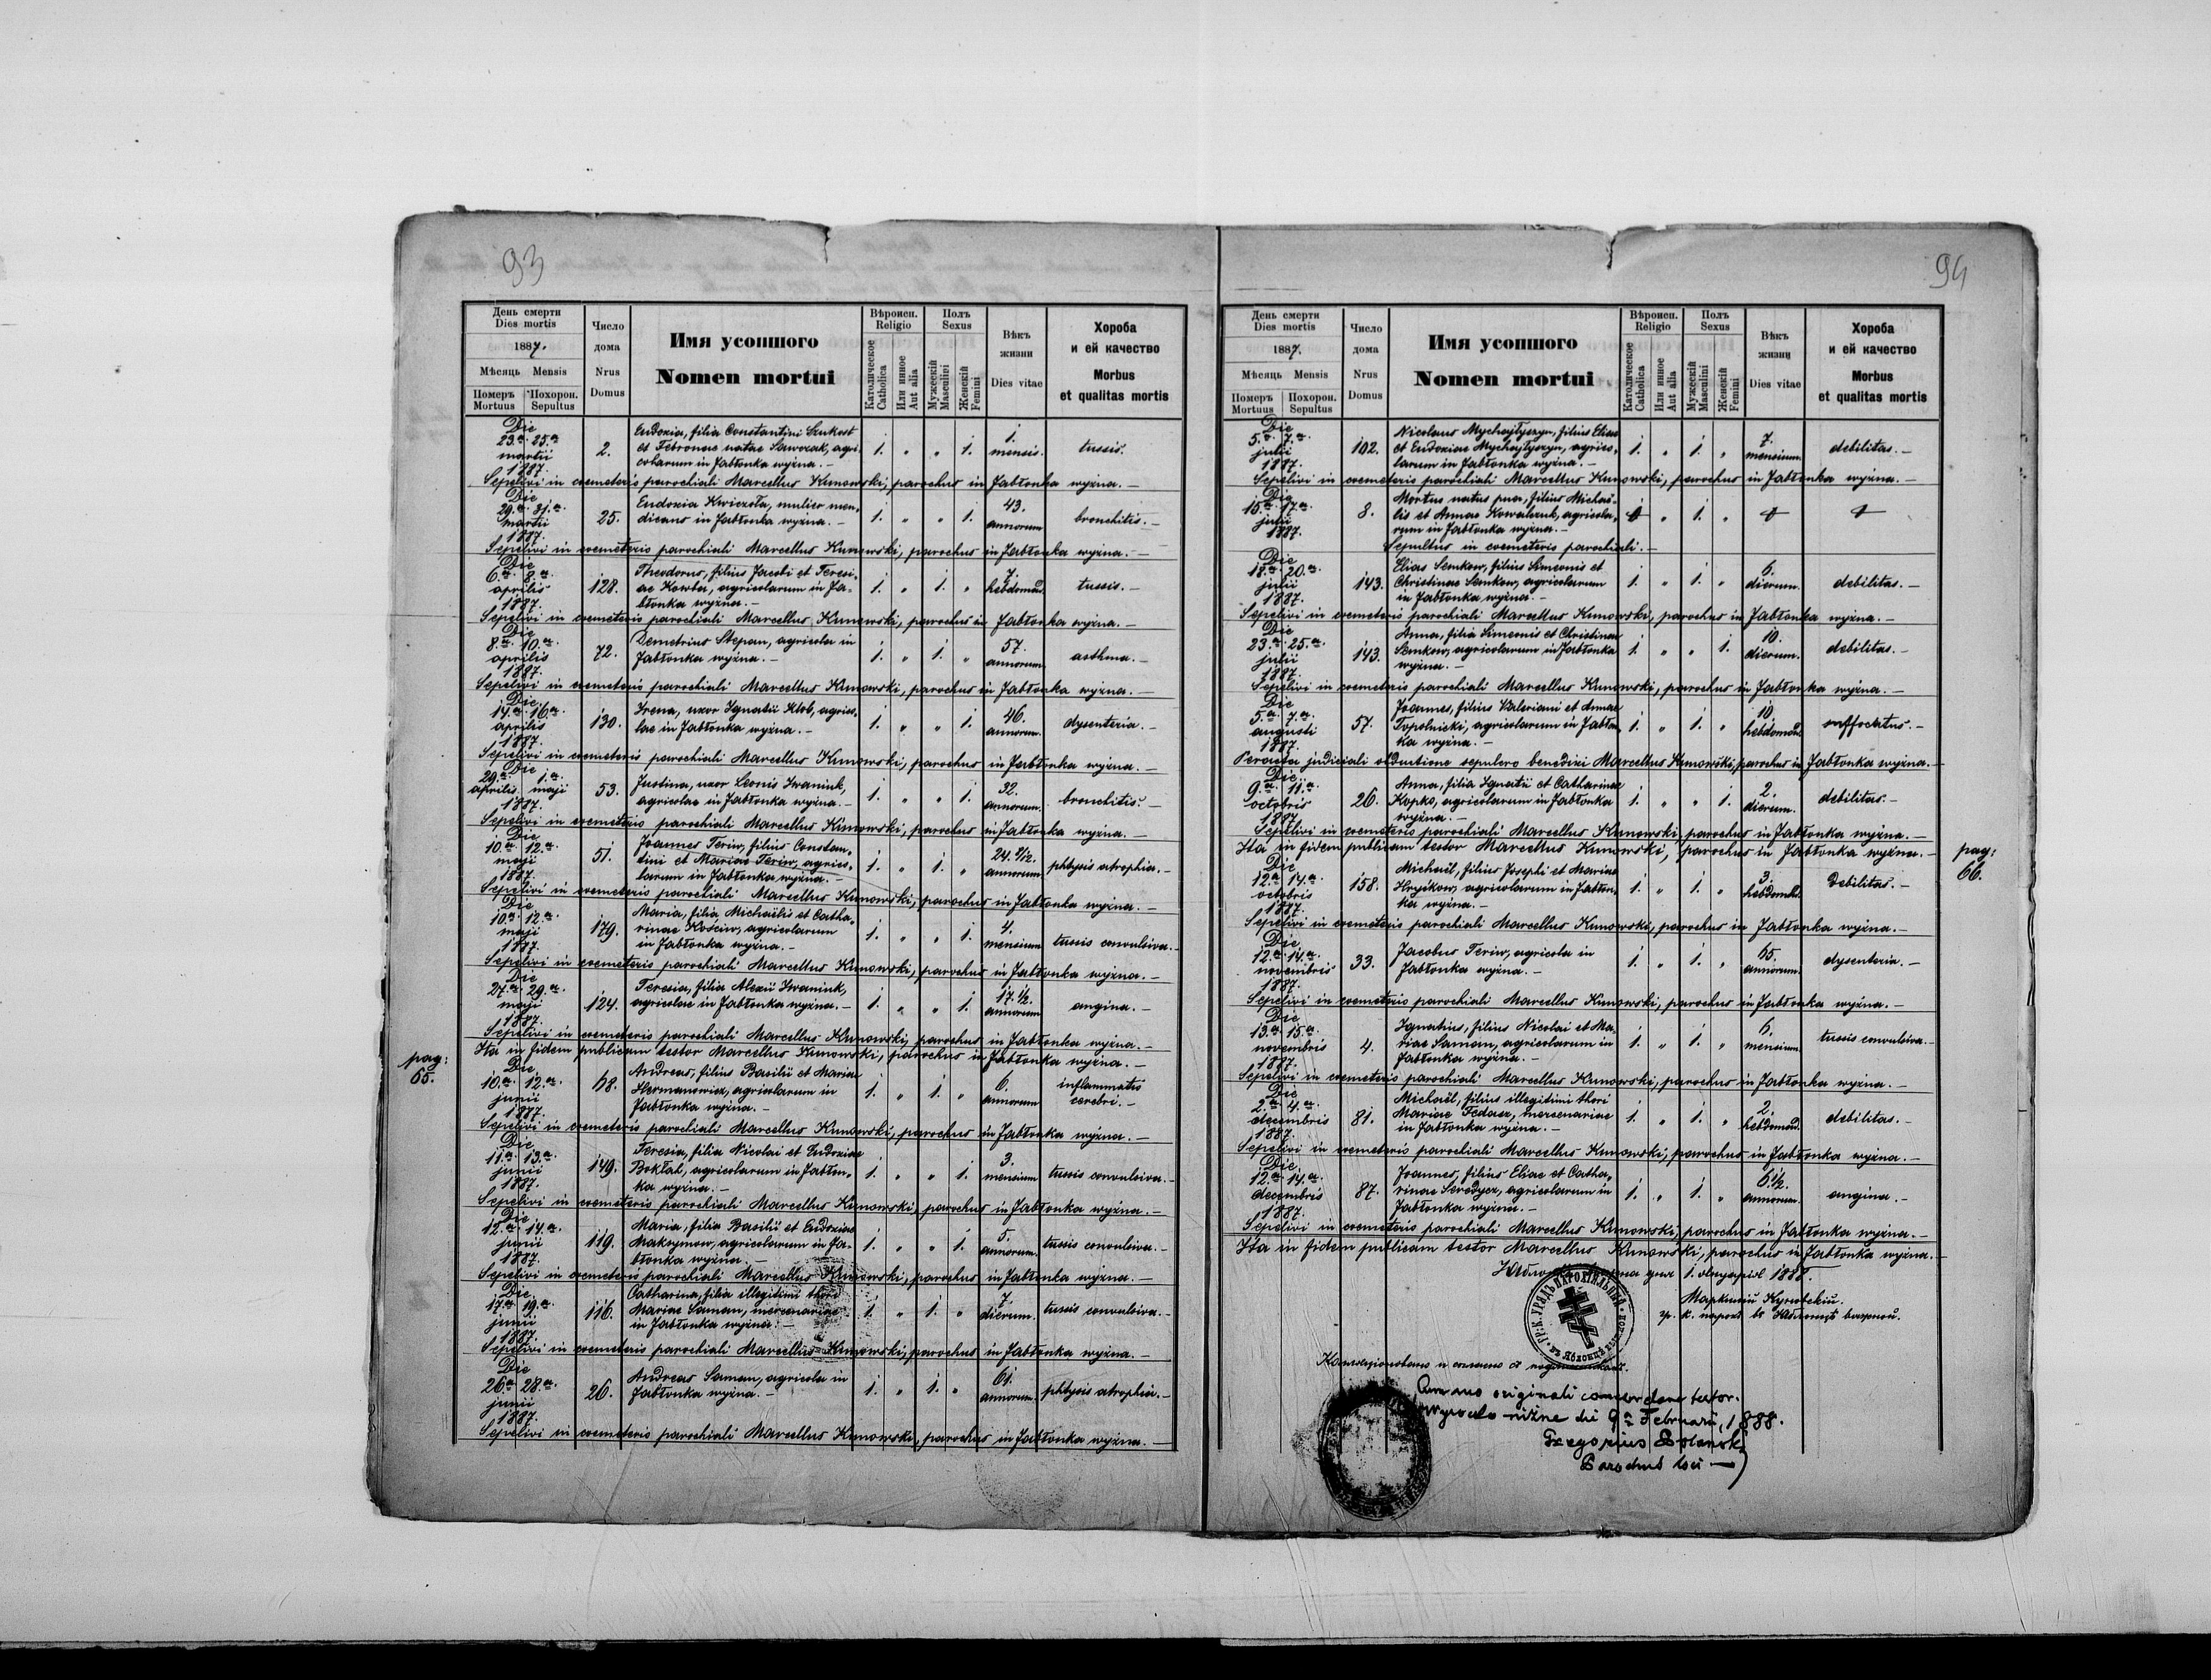 93
День смерти
Dies mortis
1887.
Мѣсяць Mensis
Померъ Похорон.
Mortuus Sepultus
Число
дома
Nrus
Domus
Имя усопшого
Nomen mortui
Вѣроисп.
Religio
Католическое
Catholica
Или инное
Aut alia
Полъ
Sexus
Мужескій
Masculini
Женскій
Femini
Вѣкъ
жизни
Dies vitae
Хороба
и ей качество
Morbus
et qualitas mortis
Die
23.a 25.a
martii
1887.
2.
Eudoxia, filia Constantini Szukost
et Febroniae natae Sawczak, agri-
colarum in Jabłonka wyżna. -
1. " " 1.
1.
mensis.
tussis.
Sepelivi in coemeterio parochiali Marcellus Kunowski, parochus in Jabłonka wyżna. -
Die
29.a 31.a
martii
1887.
25.
Eudoxia Kwiczoła, mulier men-
dicans in Jabłonka wyżna. -
1. " " 1.
43.
annorum
bronchitis. -
Sepelivi in coemeterio parochiali Marcellus Kunowski, parochus in Jabłonka wyżna. -
Die
6.a 8.a
aprilis
1887.
128.
Theodorus, filius Jacobi et Teresi-
ae Kowba, agricolarum in Ja-
błonka wyżna. -
1. " 1. "
7.
hebdomad.
tussis. -
Sepelivi in coemeterio parochiali Marcellus Kunowski, parochus in Jabłonka wyżna. -
Die
8.a 10.a
aprilis
1887.
72.
Demetrius Stepan, agricola in
Jabłonka wyżna. -
1. " 1. "
57.
annorum
asthma. -
Sepelivi in coemeterio parochiali Marcellus Kunowski, parochus in Jabłonka wyżna. -
Die
14.a 16.a
aprilis
1887.
130.
Irena, uxor Ignatii Kłob, agrico-
lae in Jabłonka wyżna. -
1. " " 1.
46.
annorum.
dysenteria. -
Sepelivi in coemeterio parochiali Marcellus Kunowski, parochus in Jabłonka wyżna. -
Die
29.a 1.a
aprilis maji
1887.
53.
Justina, uxor Leonis Iwaniuk,
agricolae in Jabłonka wyżna. -
1. " " 1.
32.
annorum.
bronchitis. -
Sepelivi in coemeterio parochiali Marcellus Kunowski, parochus in Jabłonka wyżna. -
Die
10.a 12.a
maji
1887.
51.
Joannes Teriw, filius Constan-
tini et Mariae Teriw, agrico-
larum in Jabłonka wyżna. -
1. " 1. "
24. 2/12.
annorum
phtysis atrophia. -
Sepelivi in coemeterio parochiali Marcellus Kunowski, parochus in Jabłonka wyżna. -
Die
10.a 12.a
maji
1887.
179.
Maria, filia Michaëlis et Catha-
rinae Kościw, agricolarum
in Jabłonka wyżna. -
1. " " 1.
4.
mensium
tussis convulsiva. -
Sepelivi in coemeterio parochiali Marcellus Kunowski, parochus in Jabłonka wyżna. -
Die
27.a 29.a
maji
1887.
124.
Teresia, filia Alexii Iwaniuk,
agricolae in Jabłonka wyżna. -
1. " " 1.
17. 1/2.
annorum
angina. -
Sepelivi in coemeterio parochiali Marcellus Kunowski, parochus in Jabłonka wyżna. -
Ita in fidem publicam testor Marcellus Kunowski, parochus in Jabłonka wyżna. -
pag:
65.
Die
10.a 12.a
junii
1887.
68.
Andreas, filius Basilii et Mariae
Hermanowicz, agricolarum in
Jabłonka wyżna. -
1. " 1. "
6.
annorum
inflammatio
cerebri. -
Sepelivi in coemeterio parochiali Marcellus Kunowski, parochus in Jabłonka wyżna. -
Die
11.a 13.a
junii
1887.
149.
Teresia, filia Nicolai et Eudoxiae
Bokłah, agricolarum in Jabłon-
ka wyżna. -
1. " " 1.
3.
mensium
tussis convulsiva. -
Sepelivi in coemeterio parochiali Marcellus Kunowski, parochus in Jabłonka wyżna. -
Die
12.a 14.a
junii
1887.
119.
Maria, filia Basilii et Eudoxiae
Maksymow, agricolarum in Ja-
błonka wyżna. -
1. " " 1.
5.
annorum.
tussis convulsiva. -
Sepelivi in coemeterio parochiali Marcellus Kunowski, parochus in Jabłonka wyżna. -
Die
17.a 19.a
junii
1887.
116.
Catharina, filia illegitimi thori
Mariae Saman, mercenariae
in Jabłonka wyżna. -
1. " 1. "
7.
dierum.
tussis convulsiva. -
Sepelivi in coemeterio parochiali Marcellus Kunowski, parochus in Jabłonka wyżna. -
Die
26.a 28.a
junii
1887.
26.
Andreas Saman, agricola in
Jabłonka wyżna. -
1. " 1. "
61.
annorum.
phtysis atrophia. -
Sepelivi in coemeterio parochiali Marcellus Kunowski, parochus in Jabłonka wyżna. -
94
День смерти
Dies mortis
1887.
Мѣсяць Mensis
Померъ Похорон.
Mortuus Sepultus
Число
дома
Nrus
Domus
Имя усопшого
Nomen mortui
Вѣроисп.
Religio
Католическое
Catholica
Или инное
Aut alia
Полъ
Sexus
Мужескій
Masculini
Женскій
Femini
Вѣкъ
жизни
Dies vitae
Хороба
и ей качество
Morbus
et qualitas mortis
Die
5.a 7.a
julii
1887.
102.
Nicolaus Mychajłyszyn, filius Eliae
et Eudoxiae Mychajłyszyn, agrico-
larum in Jabłonka wyżna. -
1. " 1. "
7.
mensium.
debilitas. -
Sepelivi in coemeterio parochiali Marcellus Kunowski, parochus in Jabłonka wyżna. -
Die
15.a 17.a
julii
1887.
8.
Mortus natus puer, filius Michaë-
lis et Annae Kowalczuk, agricola-
rum in Jabłonka wyżna. -
" 1. "
Sepultus in coemeterio parochiali. -
Die
18.a 20.a
julii
1887.
143.
Elias Semkow, filius Simeonis et
Christinae Semkow, agricolarum
in Jabłonka wyżna. -
1. " 1. "
6.
dierum.
debilitas. -
Sepelivi in coemeterio parochiali Marcellus Kunowski, parochus in Jabłonka wyżna. -
Die
23.a 25.a
julii
1887.
143.
Anna, filia Simeonis et Christinae
Semkow, agricolarum in Jabłonka
wyżna. -
1. " " 1.
10.
dierum.
debilitas. -
Sepelivi in coemeterio parochiali Marcellus Kunowski, parochus in Jabłonka wyżna. -
Die
5.a 7.a
augusti
1887.
57.
Joannes, filius Valeriani et Annae
Topolnicki, agricolarum in Jabłon-
ka wyżna. -
1. " 1. "
10.
hebdomad.
suffocatus. -
Peracta judiciali obductione sepulcro benedixi Marcellus Kunowski, parochus in Jabłonka wyżna. -
Die
9.a 11.a
octobris
1887.
26.
Anna, filia Ignatii et Catharinae
Kopko, agricolarum in Jabłonka
wyżna. -
1. " " 1.
2.
dierum.
debilitas. -
Sepelivi in coemeterio parochiali Marcellus Kunowski, parochus in Jabłonka wyżna. -
Ita in fidem publicam testor Marcellus Kunowski, parochus in Jabłonka wyżna. -
pag:
66.
Die
12.a 14.a
octobris
1887.
158.
Michaël, filius Josephi et Mariae
Hryckow, agricolarum in Jabłon-
ka wyżna. -
1. " 1. "
3.
hebdomad.
debilitas. -
Sepelivi in coemeterio parochiali Marcellus Kunowski, parochus in Jabłonka wyżna. -
Die
12.a 14.a
novembris
1887.
33.
Jacobus Teriw, agricola in
Jabłonka wyżna. -
1. " 1. "
65.
annorum.
dysenteria. -
Sepelivi in coemeterio parochiali Marcellus Kunowski, parochus in Jabłonka wyżna. -
Die
13.a 15.a
novembris
1887.
4.
Ignatius, filius Nicolai et Ma-
riae Saman, agricolarum in
Jabłonka wyżna. -
1. " 1. "
6.
mensium.
tussis convulsiva. -
Sepelivi in coemeterio parochiali Marcellus Kunowski, parochus in Jabłonka wyżna. -
Die
2.a 4.a
decembris
1887.
81.
Michaël, filius illegitimi thori
Mariae Fedasz, mercenariae
in Jabłonka wyżna. -
1. " 1. "
2.
hebdomad.
debilitas. -
Sepelivi in coemeterio parochiali Marcellus Kunowski, parochus in Jabłonka wyżna. -
Die
12.a 14.a
decembris
1887.
87.
Joannes, filius Eliae et Catha-
rinae Seredycz, agricolarum in
Jabłonka wyżna. -
1. " 1. "
6 1/2.
annorum.
angina. -
Sepelivi in coemeterio parochiali Marcellus Kunowski, parochus in Jabłonka wyżna. -
Ita in fidem publicam testor Marcellus Kunowski, parochus in Jabłonka wyżna. -
дня 1. януарія 1888.
гр. к. парох въ Яблонцѣ вызшой.
ГР. К. УРЯДЪ ПАРОХІЯЛЬНЫЙ
Cum suo originali concordare testor.
Wysocko niżne die 9.a Februarii, 1888.
Gregorius Bolański
Parochus loci